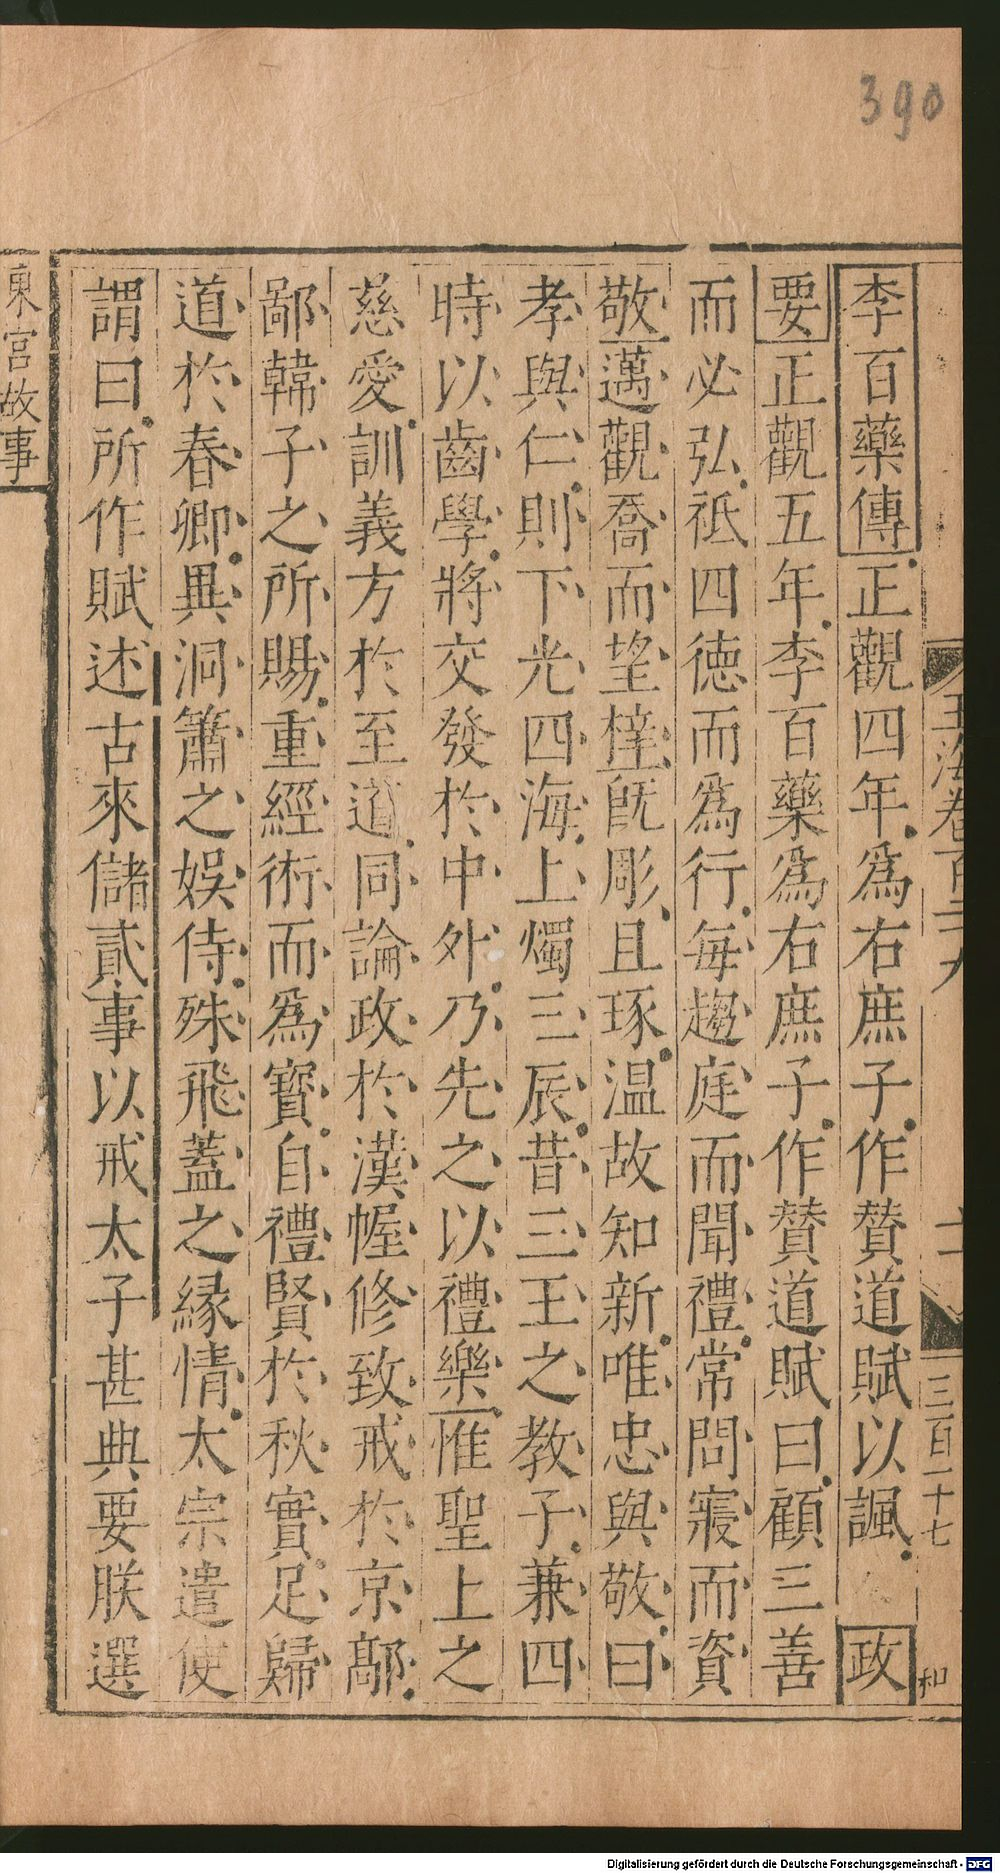 390
玉海卷百二九
三百一十七
和
李百藥傳正觀四年爲右庶子作贊道賦以諷政
要正觀五年李百藥爲右庶子作贊道賦曰顧三善
而必弘祗四德而爲行每趨庭而聞禮常問寢而資
敬邁觀喬而望梓既彫且琢温故知新唯忠與敬曰
孝與仁則下光四海上燭三辰昔三王之教子兼四
時以齒學將交發於中外乃先之以禮樂惟聖上之
慈愛訓義方於至道同論政於漢幄修致戒於京鄗
鄙韓子之所賜重經術而爲寳自禮賢於秋實足歸
道於春卿異洞簫之娛侍殊飛蓋之縁情太宗遣使
謂曰所作賦述古來儲貳事以戒太子甚典要朕選
東宮故事
Digitalisierung gefördert durch die Deutsche Forschungsgemeinschaft - DFG